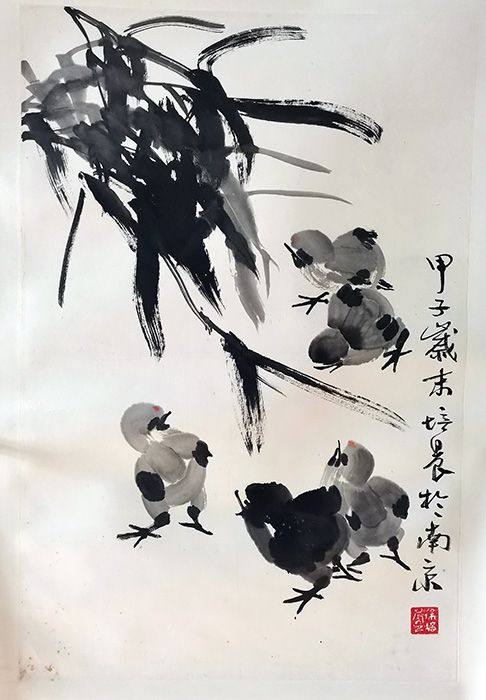 甲子岁末培晨於南京